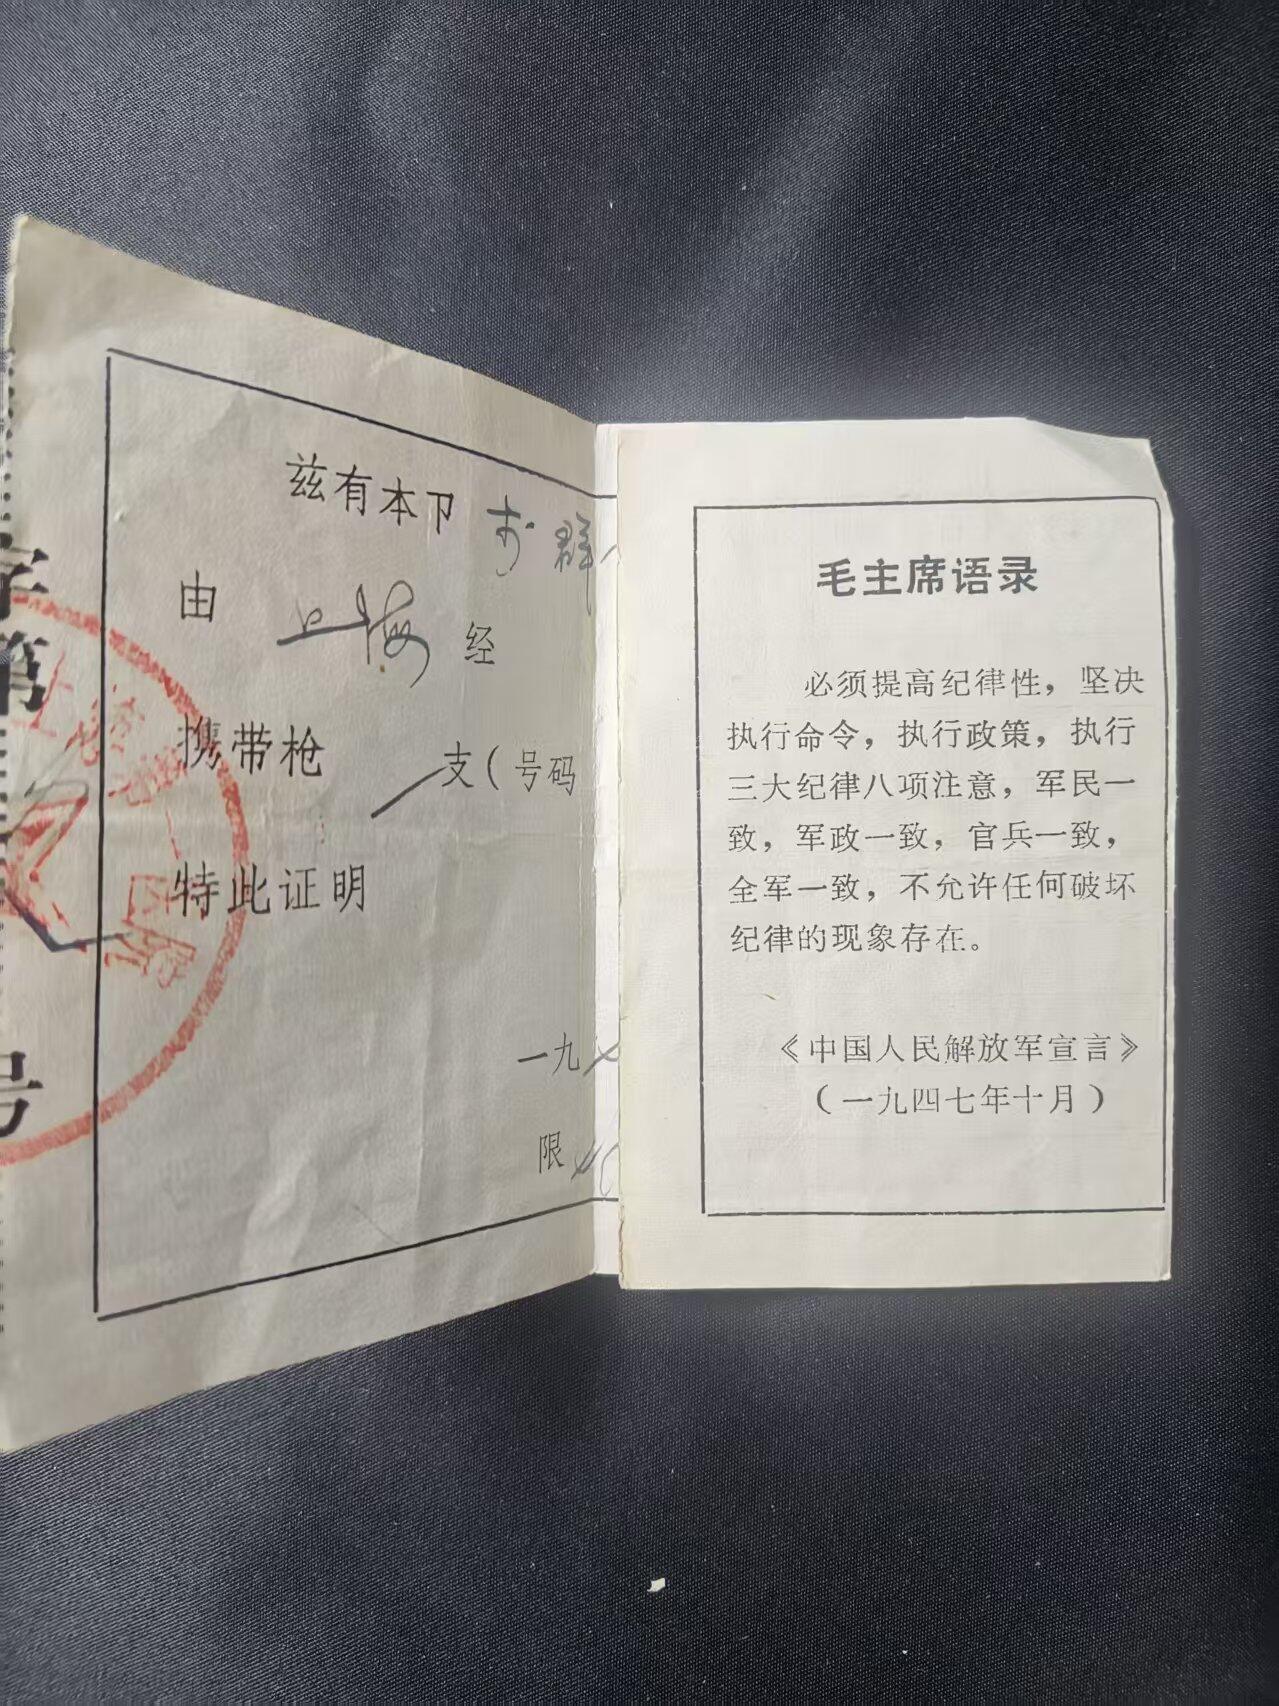 字第
号
兹有本卩
由 上海 经
携带枪 支（号码
特此证明
一九
限
毛主席语录
必须提高纪律性，坚决
执行命令，执行政策，执行
三大纪律八项注意，军民一
致，军政一致，官兵一致，
全军一致，不允许任何破坏
纪律的现象存在。
《中国人民解放军宣言》
（一九四七年十月）